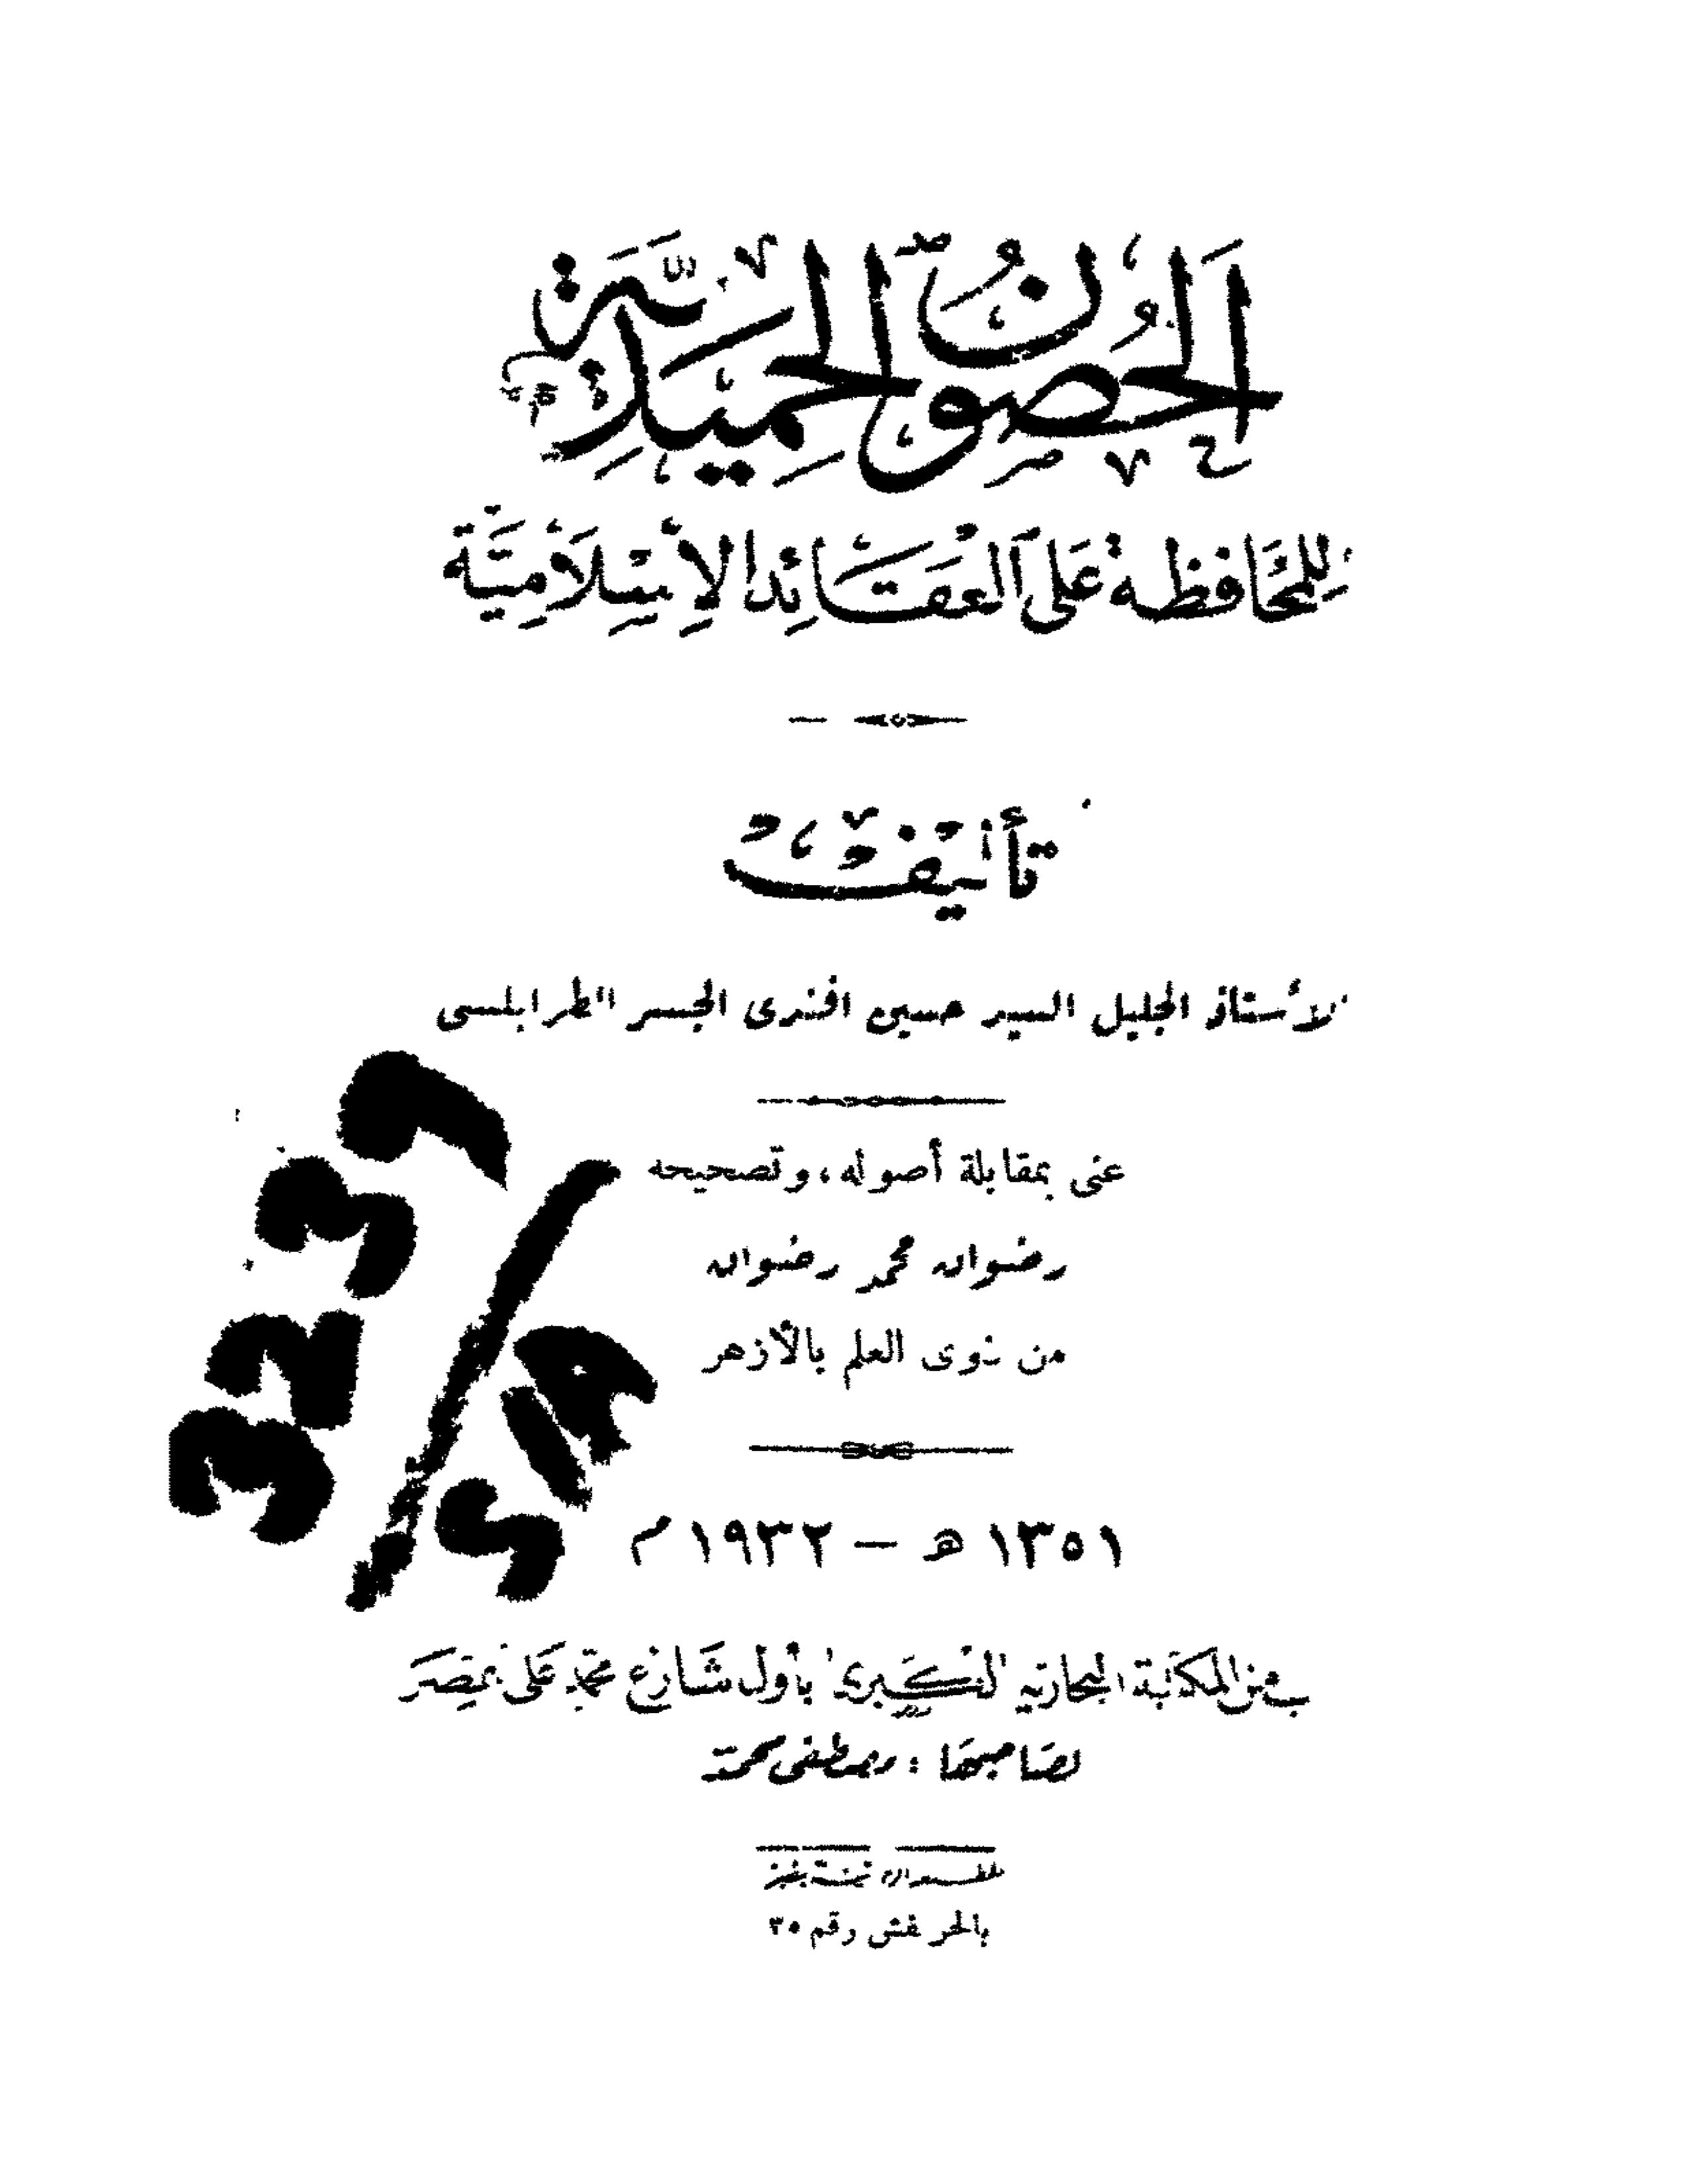 الحُصُونُ الحَمِيدِيَّة
لِلمُحَافَظَة عَلَى العَقَائِد الإِسْلَامِيَّة
تأليف
لأستاذ الجليل السيد حسين افندى الجسر الطرابلسى
عنى بمقابلة أصوله ، وتصحيحه
رضوان محمد رضوان
من ذوى العلم بالأزهر
١٣٥١ هـ — ١٩٣٢ م
المكتبة التجارية الكبرى بأول شارع محمد على بمصر
لصاحبها : مصطفى محمد
بالخرنفش رقم ٣٥